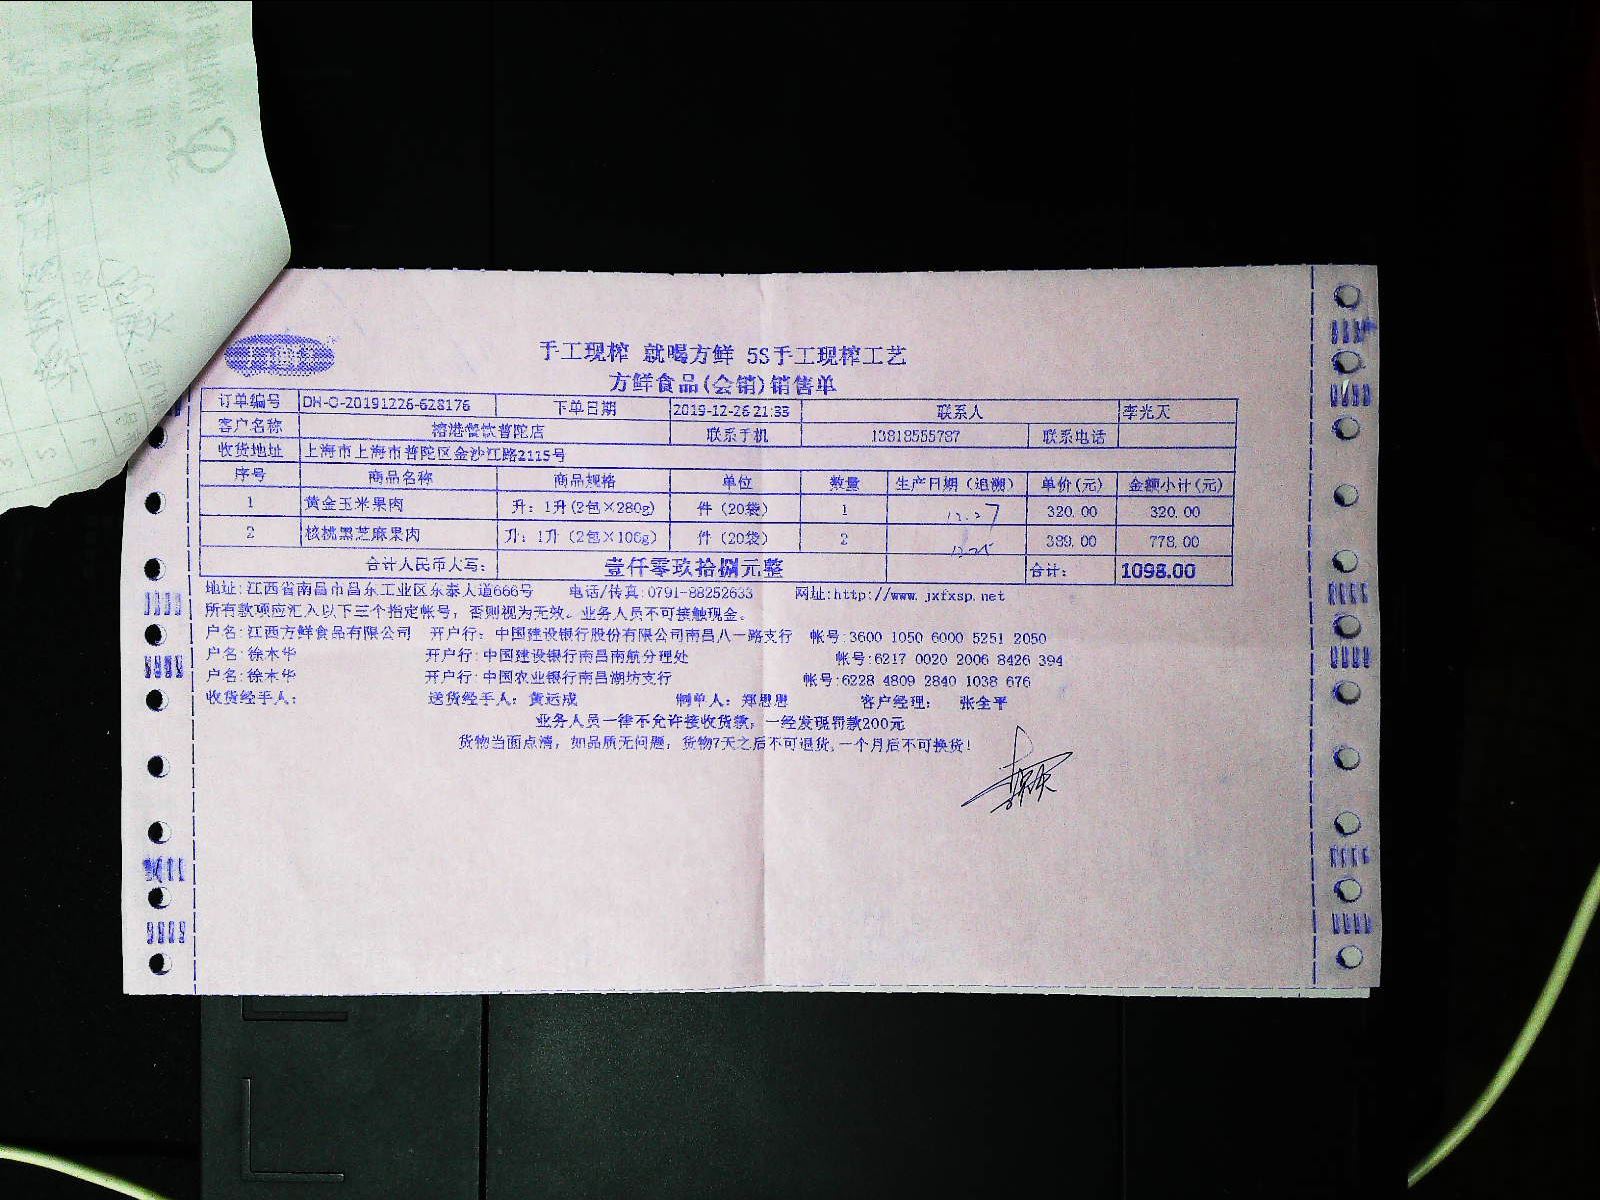 手工现榨 就喝方鲜 5S手工现榨工艺
方鲜食品(会销)销售单
订单编号 DH-O-20191226-628176 下单日期 2019-12-26 21:33 联系人 李光天
客户名称 榕港餐饮普陀店 联系手机 13818555787 联系电话
收货地址 上海市上海市普陀区金沙江路2115号
序号 商品名称 商品规格 单位 数量 生产日期（追溯） 单价(元) 金额小计(元)
1 黄金玉米果肉 升：1升(2包×280g) 件（20袋） 1 12.27 320.00 320.00
2 核桃黑芝麻果肉 升：1升（2包×106g） 件（20袋） 2 389.00 778.00
合计人民币大写： 壹仟零玖拾捌元整 合计： 1098.00
地址:江西省南昌市昌东工业区东泰大道666号 电话/传真:0791-88252633 网址:http://www.jxfxsp.net
所有款项应汇入以下三个指定帐号，否则视为无效。业务人员不可接触现金。
户名:江西方鲜食品有限公司 开户行：中国建设银行股份有限公司南昌八一路支行 帐号:3600 1050 6000 5251 2050
户名:徐木华 开户行:中国建设银行南昌南航分理处 帐号:6217 0020 2006 8426 394
户名:徐木华 开户行:中国农业银行南昌湖坊支行 帐号:6228 4809 2840 1038 676
收货经手人： 送货经手人：黄运成 制单人：郑思恩 客户经理： 张全平
业务人员一律不允许接收货款，一经发现罚款200元
货物当面点清，如品质无问题，货物7天之后不可退货,一个月后不可换货！